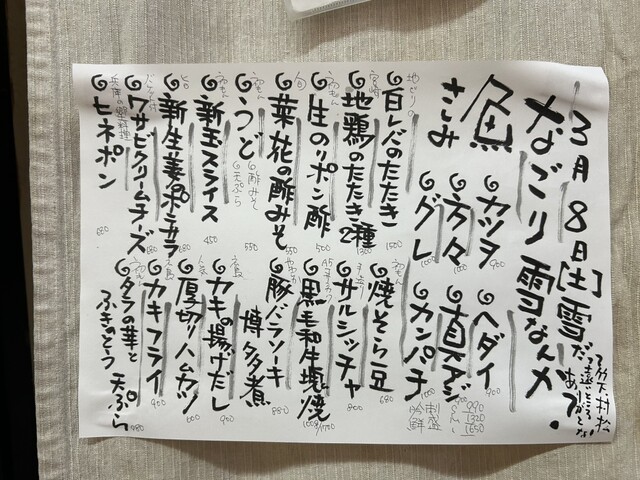 3月8日[土]雪だ
なごり雪なんかあっ。
魚さしみ
カツヲ 900
方々 1000
グレ 1000
ヘダイ 900
真アジ
カンパチ 1000
刺盛
990
1320
1650
白レバのたたき 1500
宮崎
地鶏のたたき2種 1300
生のりポン酢 500
旬
菜花の酢みそ 550
うど
酢みそ
天ぷら
550
新玉スライス 450
新生姜のポテサラ 680
ワサビクリームチーズ 680
兵庫の郷土料理
ヒネポン 680
焼そら豆 680
サルシッチャ 800
黒毛和牛塩焼 1000/1700
豚バラソーキ
博多煮 880
カキの揚げだし 900
厚切りハムカツ 600
カキフライ 900
タラの芽と
ふきのとう 天ぷら 980